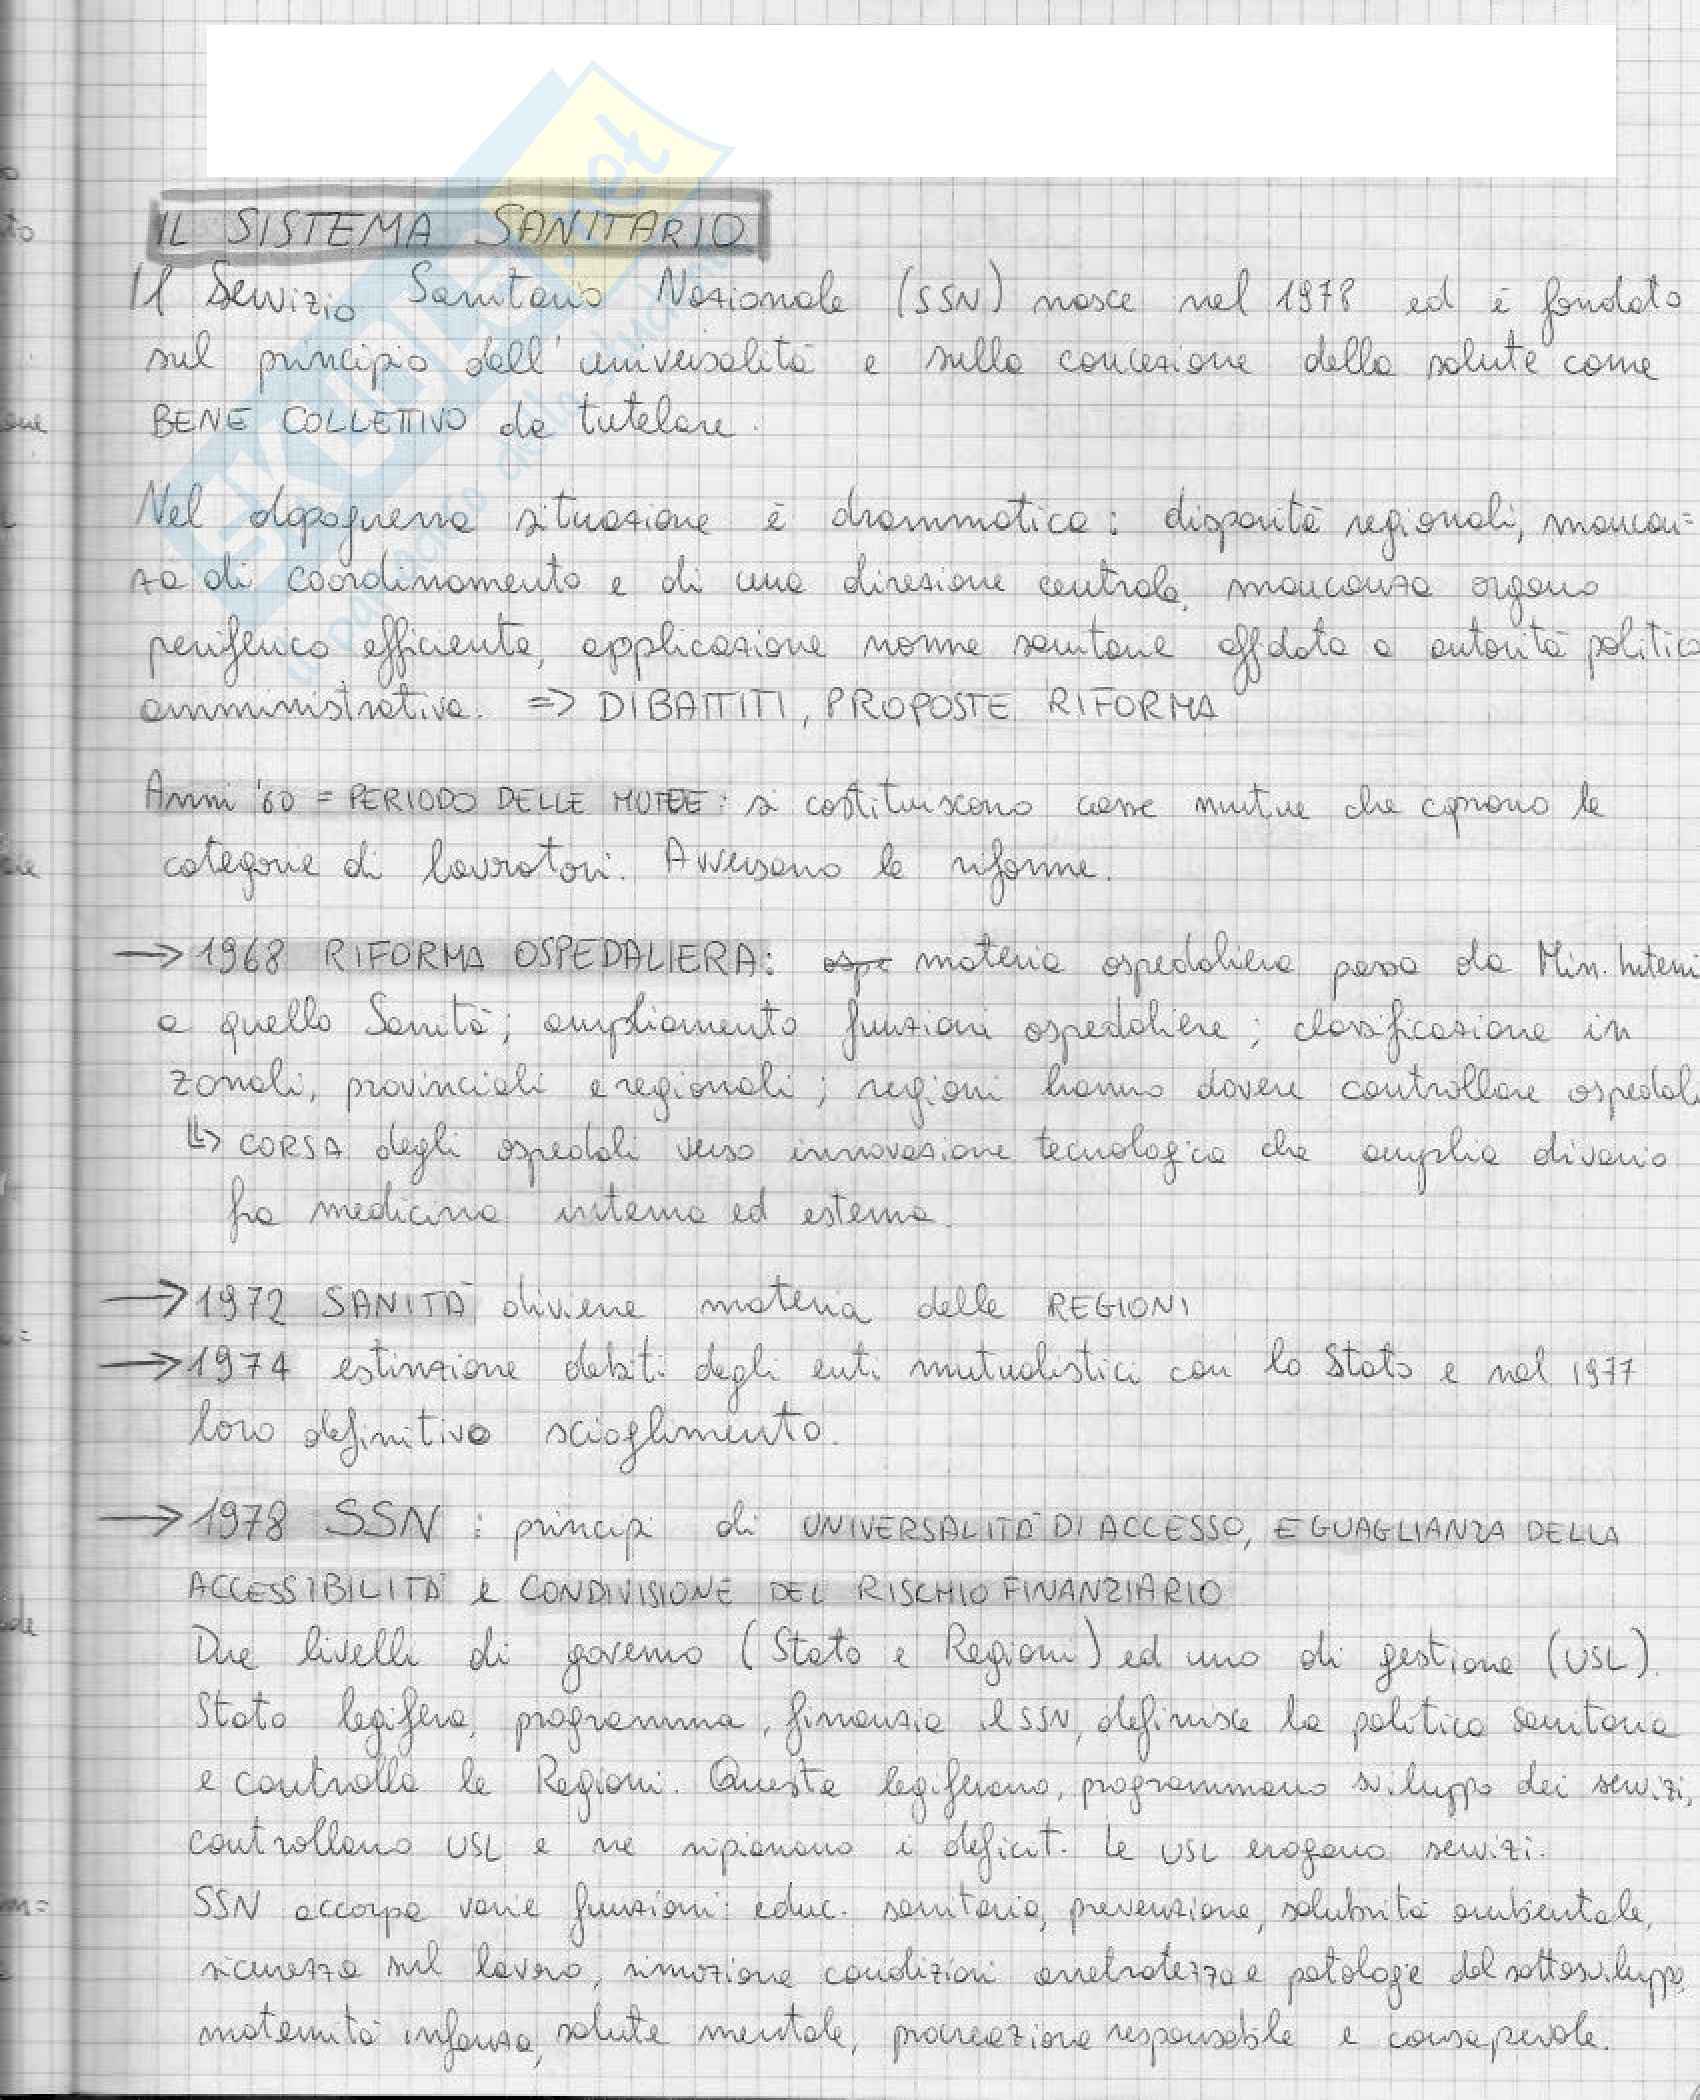 IL SISTEMA SANITARIO
Il Servizio Sanitario Nazionale (SSN) nasce nel 1978 ed è fondato
sul principio dell'universalità e sulla concezione della salute come
BENE COLLETTIVO da tutelare.
Nel dopoguerra situazione è drammatica: disparità regionali, mancan=
za di coordinamento e di una direzione centrale, mancanza organo
periferico efficiente, applicazione norme sanitarie affidata a autorità politico
amministrativa. => DIBATTITI, PROPOSTE RIFORMA
Anni '60 = PERIODO DELLE MUTUE: si costituiscono casse mutue che coprono le
categorie di lavoratori. Avversano le riforme.
→ 1968 RIFORMA OSPEDALIERA: ospe materia ospedaliera passa da Min. Interni
a quello Sanità; ampliamento funzioni ospedaliere; classificazione in
zonali, provinciali e regionali; regioni hanno dovere controllare ospedali
↳ CORSA degli ospedali verso innovazione tecnologica che amplia divario
fra medicina interna ed esterna.
→ 1972 SANITÀ diviene materia delle REGIONI
→ 1974 estinzione debiti degli enti mutualistici con lo Stato e nel 1977
loro definitivo scioglimento.
→ 1978 SSN: principi di UNIVERSALITÀ DI ACCESSO, EGUAGLIANZA DELLA
ACCESSIBILITÀ e CONDIVISIONE DEL RISCHIO FINANZIARIO
Due livelli di governo (Stato e Regioni) ed uno di gestione (USL).
Stato legifera, programma, finanzia il SSN, definisce la politica sanitaria
e controlla le Regioni. Queste legiferano, programmano sviluppo dei servizi,
controllano USL e ne ripianano i deficit. Le USL erogano servizi.
SSN accorpa varie funzioni: educ. sanitaria, prevenzione, salubrità ambientale,
sicurezza sul lavoro, rimozione condizioni arretratezza e patologie del sottosviluppo,
maternità infanzia, salute mentale, procreazione responsabile e consapevole.
SKUOLA.net